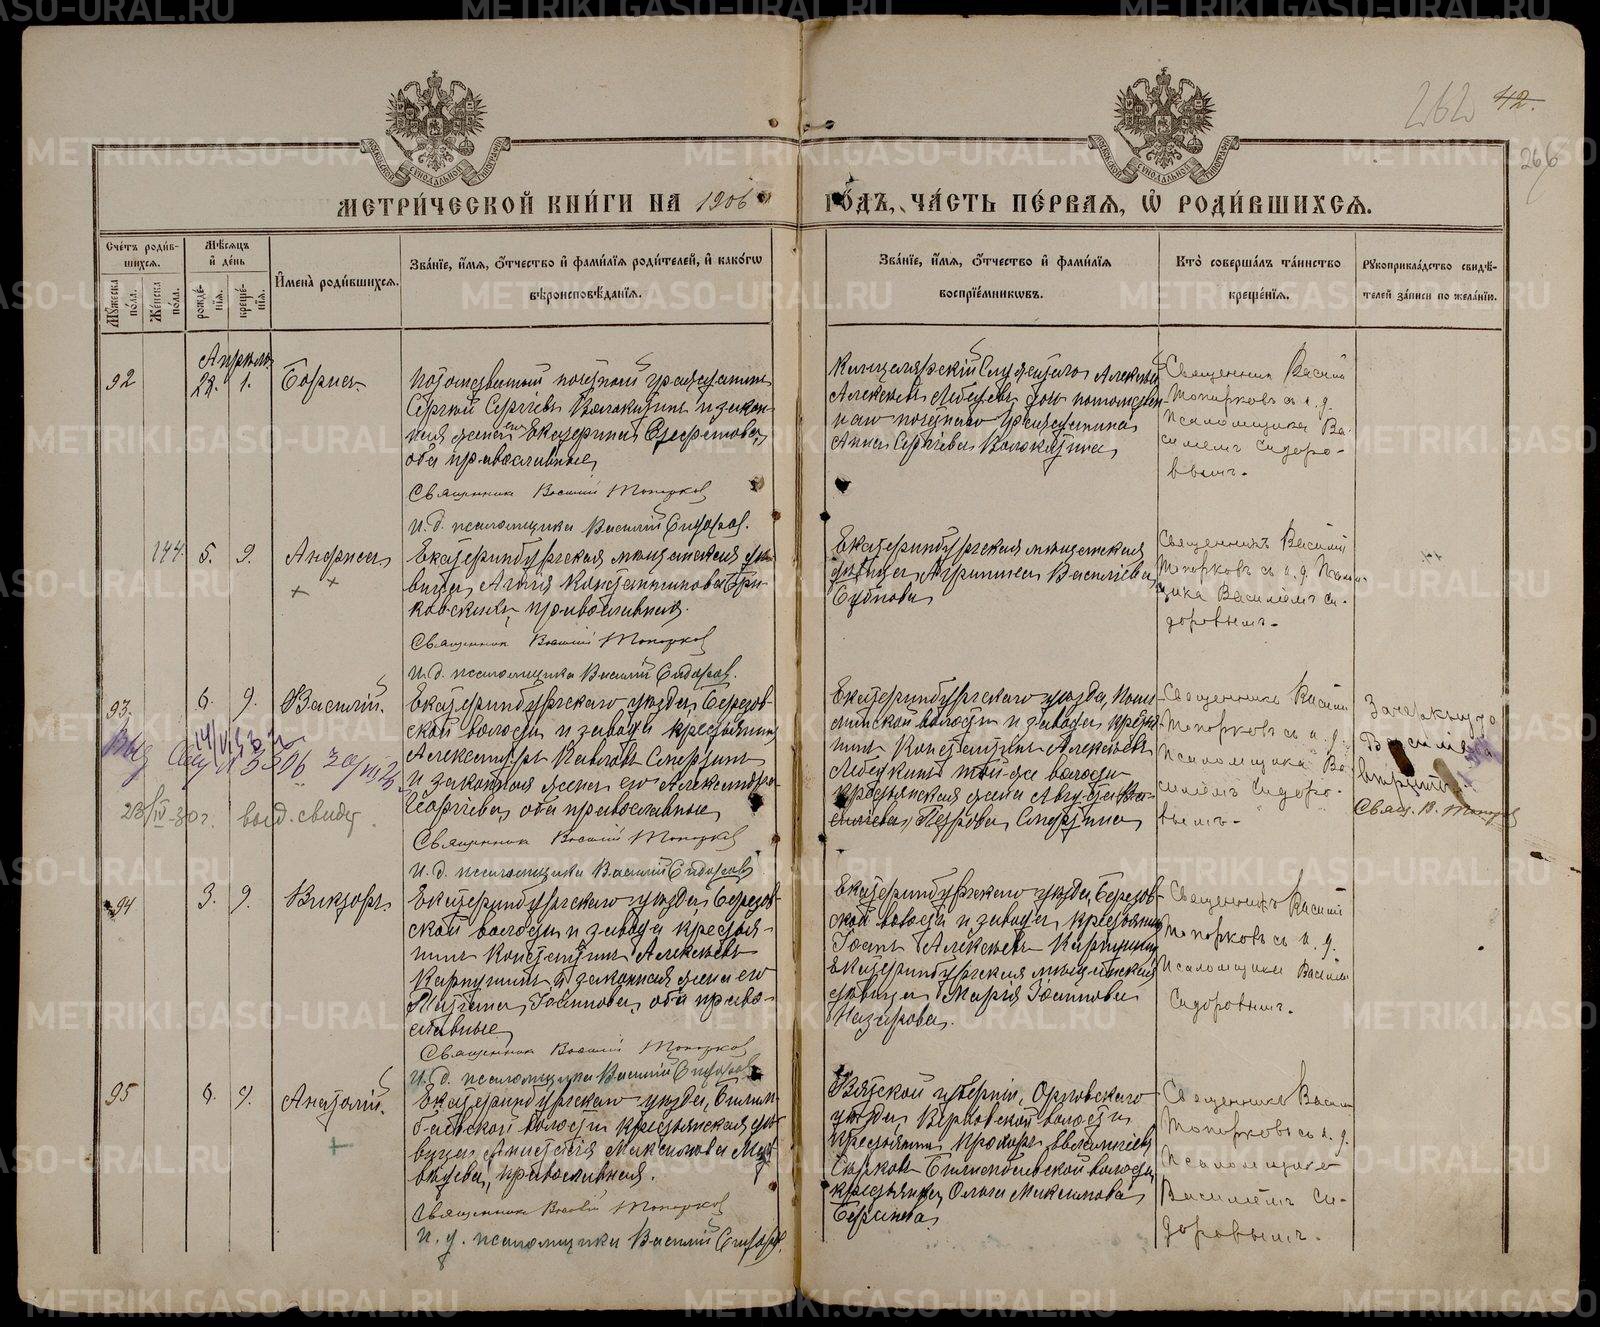 262 42.
266
МЕТРИ́ЧЕСКОЙ КНИ́ГИ НА 1906 ГО́ДЪ, ЧА́СТЬ ПЕ́РВАЯ, Ѡ РОДИ́ВШИХСЯ.
Сче́тъ роди́в-
шихся.
Му́жеска по́ла.
Же́нска по́ла.
Мѣ́сяцъ и де́нь
рожде́-
нія.
креще́-
нія.
Имена̀ роди́вшихся.
Зва́ніе, и́мя, о́тчество и фами́лія роди́телей, и како́гѡ
вѣроисповѣ́данія.
Зва́ніе, и́мя, о́тчество и фами́лія
воспріе́мникѡвъ.
Кто̀ соверша́лъ та́инство
креще́нія.
Рукоприкла́дство свидѣ́-
телей за́писи по жела́нію.
Апрѣль
92 22. 1. Борисъ
Потомственный почетный гражданинъ
Сергѣй Сергѣевъ Волокитинъ и закон-
ная жена его Екатерина
оба православные
Священникъ Василій Топорковъ
И. д. псаломщика Василій Сидоровъ.
Канцелярскій Служитель Алексѣй
Алексѣевъ дочь потомствен-
наго почетнаго гражданина
Анна Сергѣева Волокитина
Священникъ Василій
Топорковъ съ и. д.
Псаломщика Ва-
силіемъ Сидоро-
вымъ.
144. 5. 9. Анфиса
Екатеринбургская мѣщанская дѣ-
вица, Агнія Константинова
православная.
Священникъ Василій Топорковъ
И. д. псаломщика Василій Сидоровъ.
Екатеринбургская мѣщанская
дѣвица Агриппина Васильева
Священникъ Василій
Топорковъ съ и. д. Псалом-
щика Василіемъ Си-
доровымъ.
93. 6. 9. Василій.
Екатеринбургскаго уѣзда, Березов-
ской волости и завода крестьянинъ
Александръ Павловъ Смертинъ
и законная жена его Александра
Георгіева, оба православные
Священникъ Василій Топорковъ
И. д. псаломщика Василій Сидоровъ
Екатеринбургскаго уѣзда,
волости и завода крестья-
нинъ Константинъ Алексѣевъ
той-же волости
крестьянская жена Августа Ва-
сильева Петрова Смертина
Священникъ Василій
Топорковъ съ и. д.
Псаломщика Ва-
силіемъ Сидоро-
вымъ.
Зачеркнуто
Васильева
Свящ. В. Топорковъ
23/IV-30 г. выд. свидет.
94 3. 9. Викторъ.
Екатеринбургскаго уѣзда Березов-
ской волости и завода крестья-
нинъ Константинъ Алексѣевъ
Карпушинъ и законная жена его
Татіана Іоаннова, оба право-
славные
Священникъ Василій Топорковъ
И. д. псаломщика Василій Сидоровъ
Екатеринбургскаго уѣзда Березов-
ской волости и завода, крестьянинъ
Іоаннъ Алексѣевъ Карпушинъ
Екатеринбургская мѣщанская
дѣвица Марія Іоаннова
Назарова.
Священникъ Василій
Топорковъ съ и. д.
Псаломщика Василіемъ
Сидоровымъ.
95 6. 9. Анатолій.
Екатеринбургскаго уѣзда, Билим-
баевской волости крестьянская дѣ-
вица, Анастасія Максимова
православная.
Священникъ Василій Топорковъ
И. д. псаломщика Василій Сидоровъ.
Вятской губерніи, Орловскаго
уѣзда, волости
крестьянинъ Прохоръ
Билимбаевской волости,
крестьянка, Ольга Максимова
Священникъ Василій
Топорковъ съ и. д.
Псаломщика
Василіемъ Си-
доровымъ.
METRIKI.GASO-URAL.RU